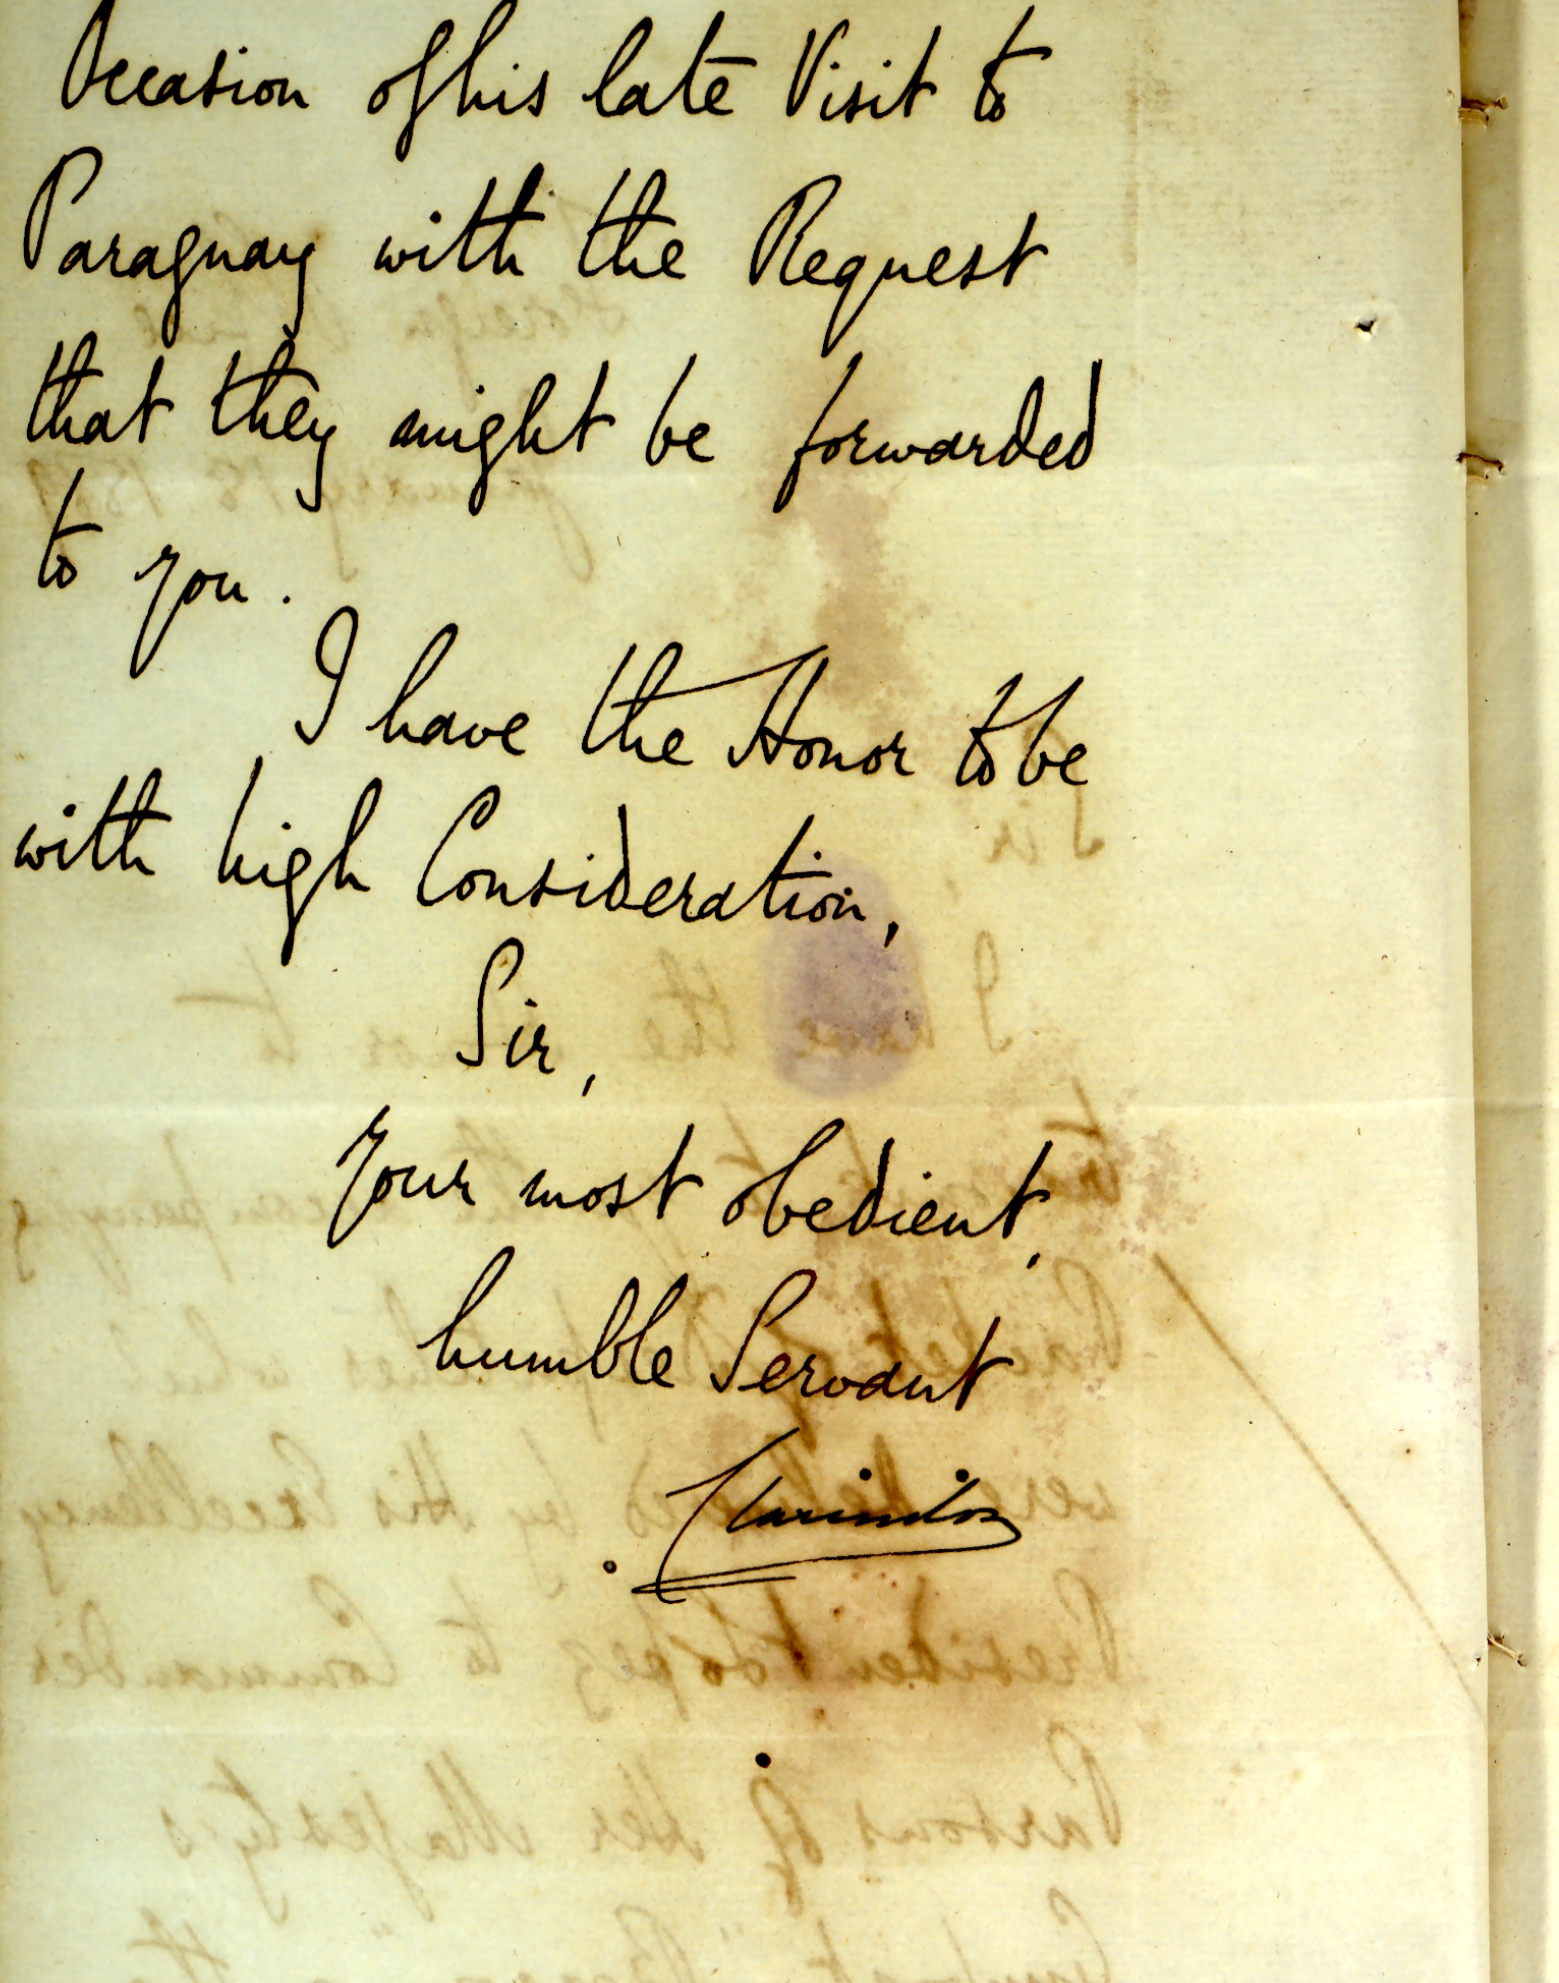 Occasion of his late Visit to
Paraguay with the Request
that they might be forwarded
to you.
I have the Honor to be
with high Consideration,
Sir,
Your most obedient,
humble Servant
Clarendon